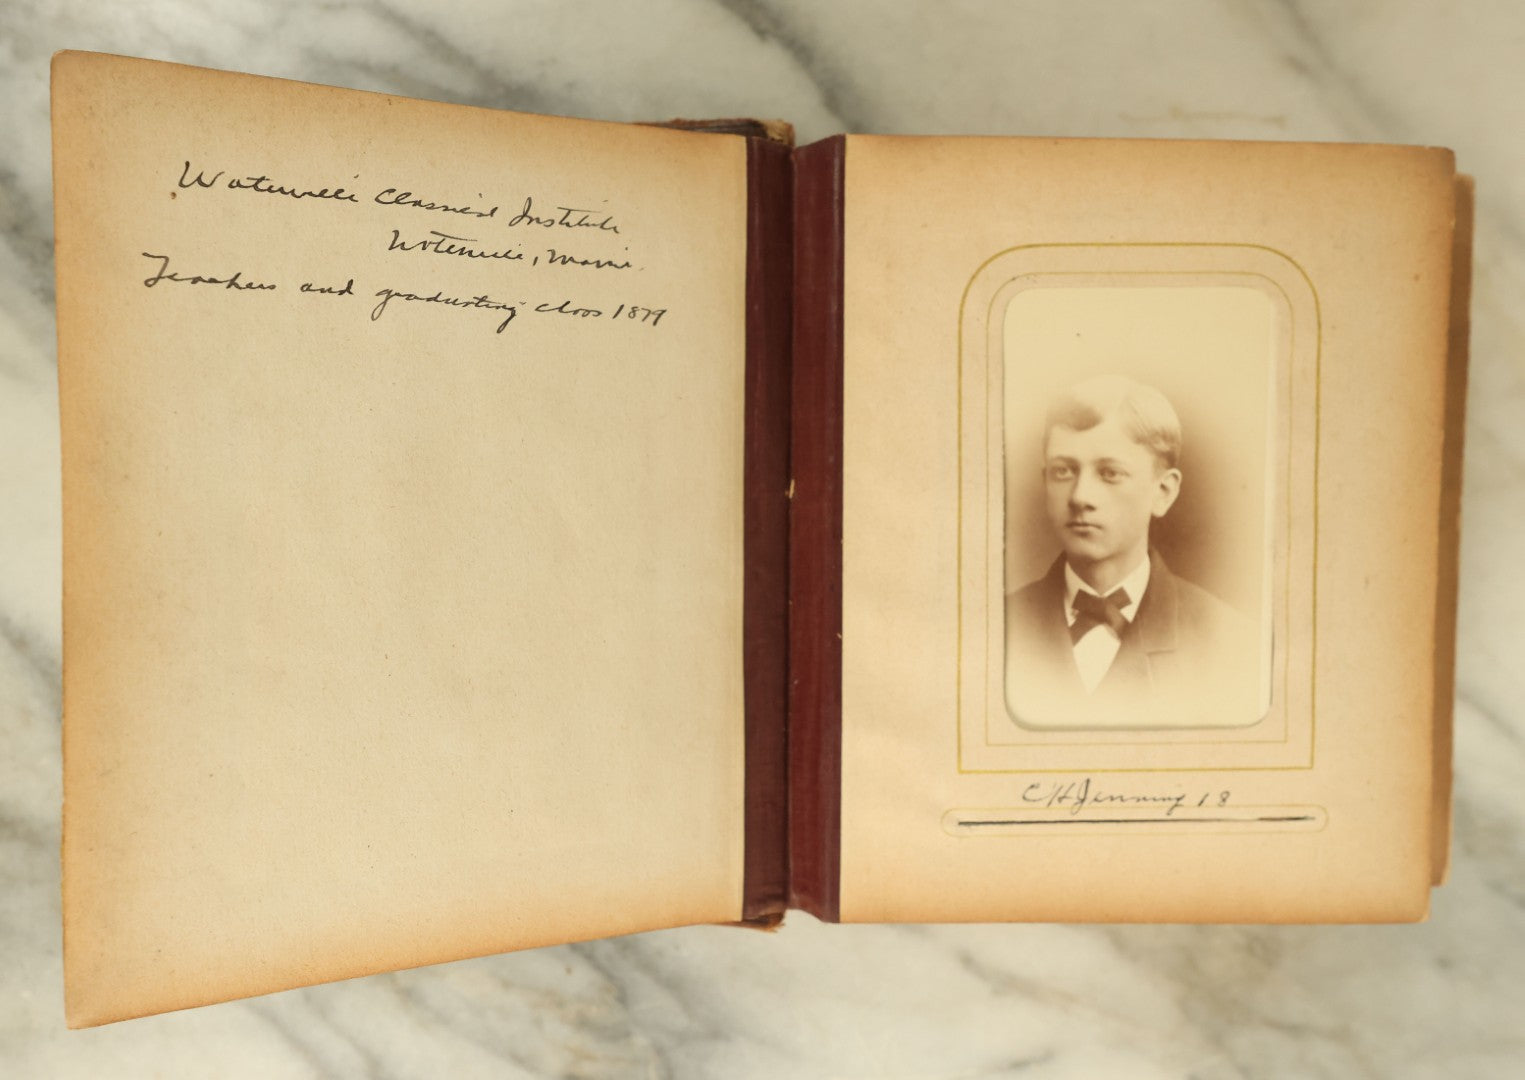 Waterville Classical Institute
Waterville, Maine.
Teachers and graduating class 1879
C H Jenning 18